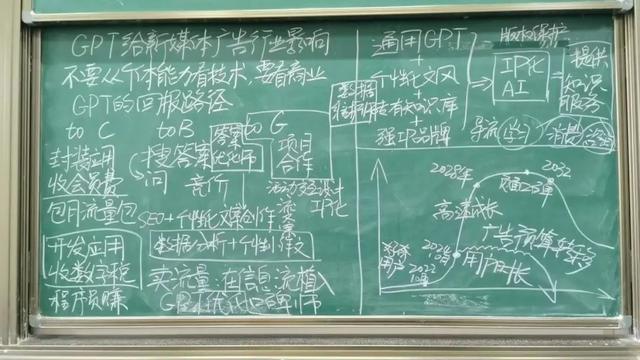 GPT给新媒体广告行业影响
不要从个体能力看技术,要看商业
GPT的回报路径
to C
to B
to G
封装应用
收会员费
包月流量包
开发应用
收数字税
程序员赚
搜答案
问 竞价
答案
优化师
项目
合作
IP化
SEO+个性化文案创作
数据分析+个性创作文
买流量:在信息流植入
通用GPT
+
个性化文风
+
专有知识库
+
强IP品牌
数据
版权保护
IP化
AI
提供
知识
服务
导流
学
消费
咨
2028年
2032
高速成长
广告预算转移
用户增长
2022